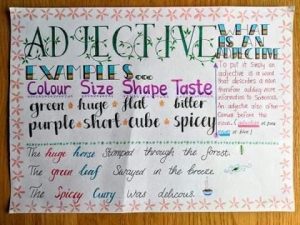 ADJECTIVE
WHAT
IS AN
ADJECTIVE
EXAMPLES...
Colour Size Shape Taste
green huge flat bitter
purple short cube spicy
To put it simply an
adjective is a word
that describes a noun
therefore adding more
information to Sentences.
An adjective also often
Comes before the
The huge horse Stomped through the forest.
The green leaf Swayed in the breeze
The Spicy Curry was delicous.